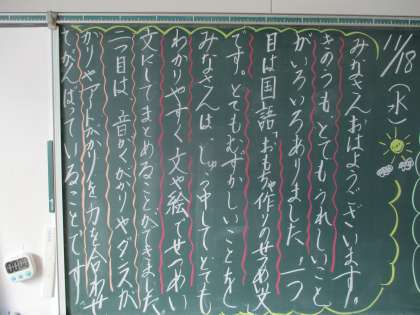 11/18(水)
みなさんおはようございます。
きのうも、とてもうれしいこと
がいろいろありました。一つ
目は国語「おもちゃ作りのせつ明文」
です。とてもむずかしいことをし
みなさんは、しゅう中してとても
わかりやすく文や絵でせつめい
文にしてまとめることができました。
二つ目は、音がくがかりやダンスが
かりやアートがかりを力を合わせ
がんばっていることです。